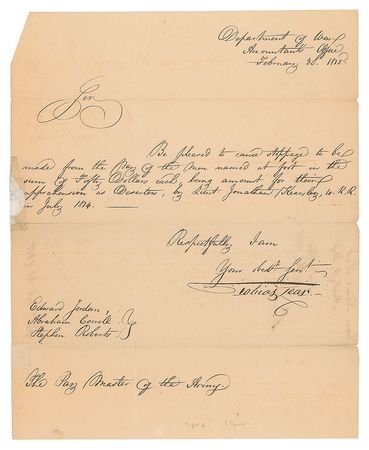 Department of War
Accountants Office
February 26. 1815.
Sir
Be pleased to cause stoppage to be
made from the Pay of the Men named at foot in the
sum of Fifty Dollars each, being amount for their
apprehension as Deserters, by Lieut Jonathan Kearsley, 4. R.R.
in July 1814.
Respectfully I am
Your obdt. Servt.
Tobias Lear
Edward Jordan,
Abraham
Stephen Roberts
The Pay Master of the Army.
1812.